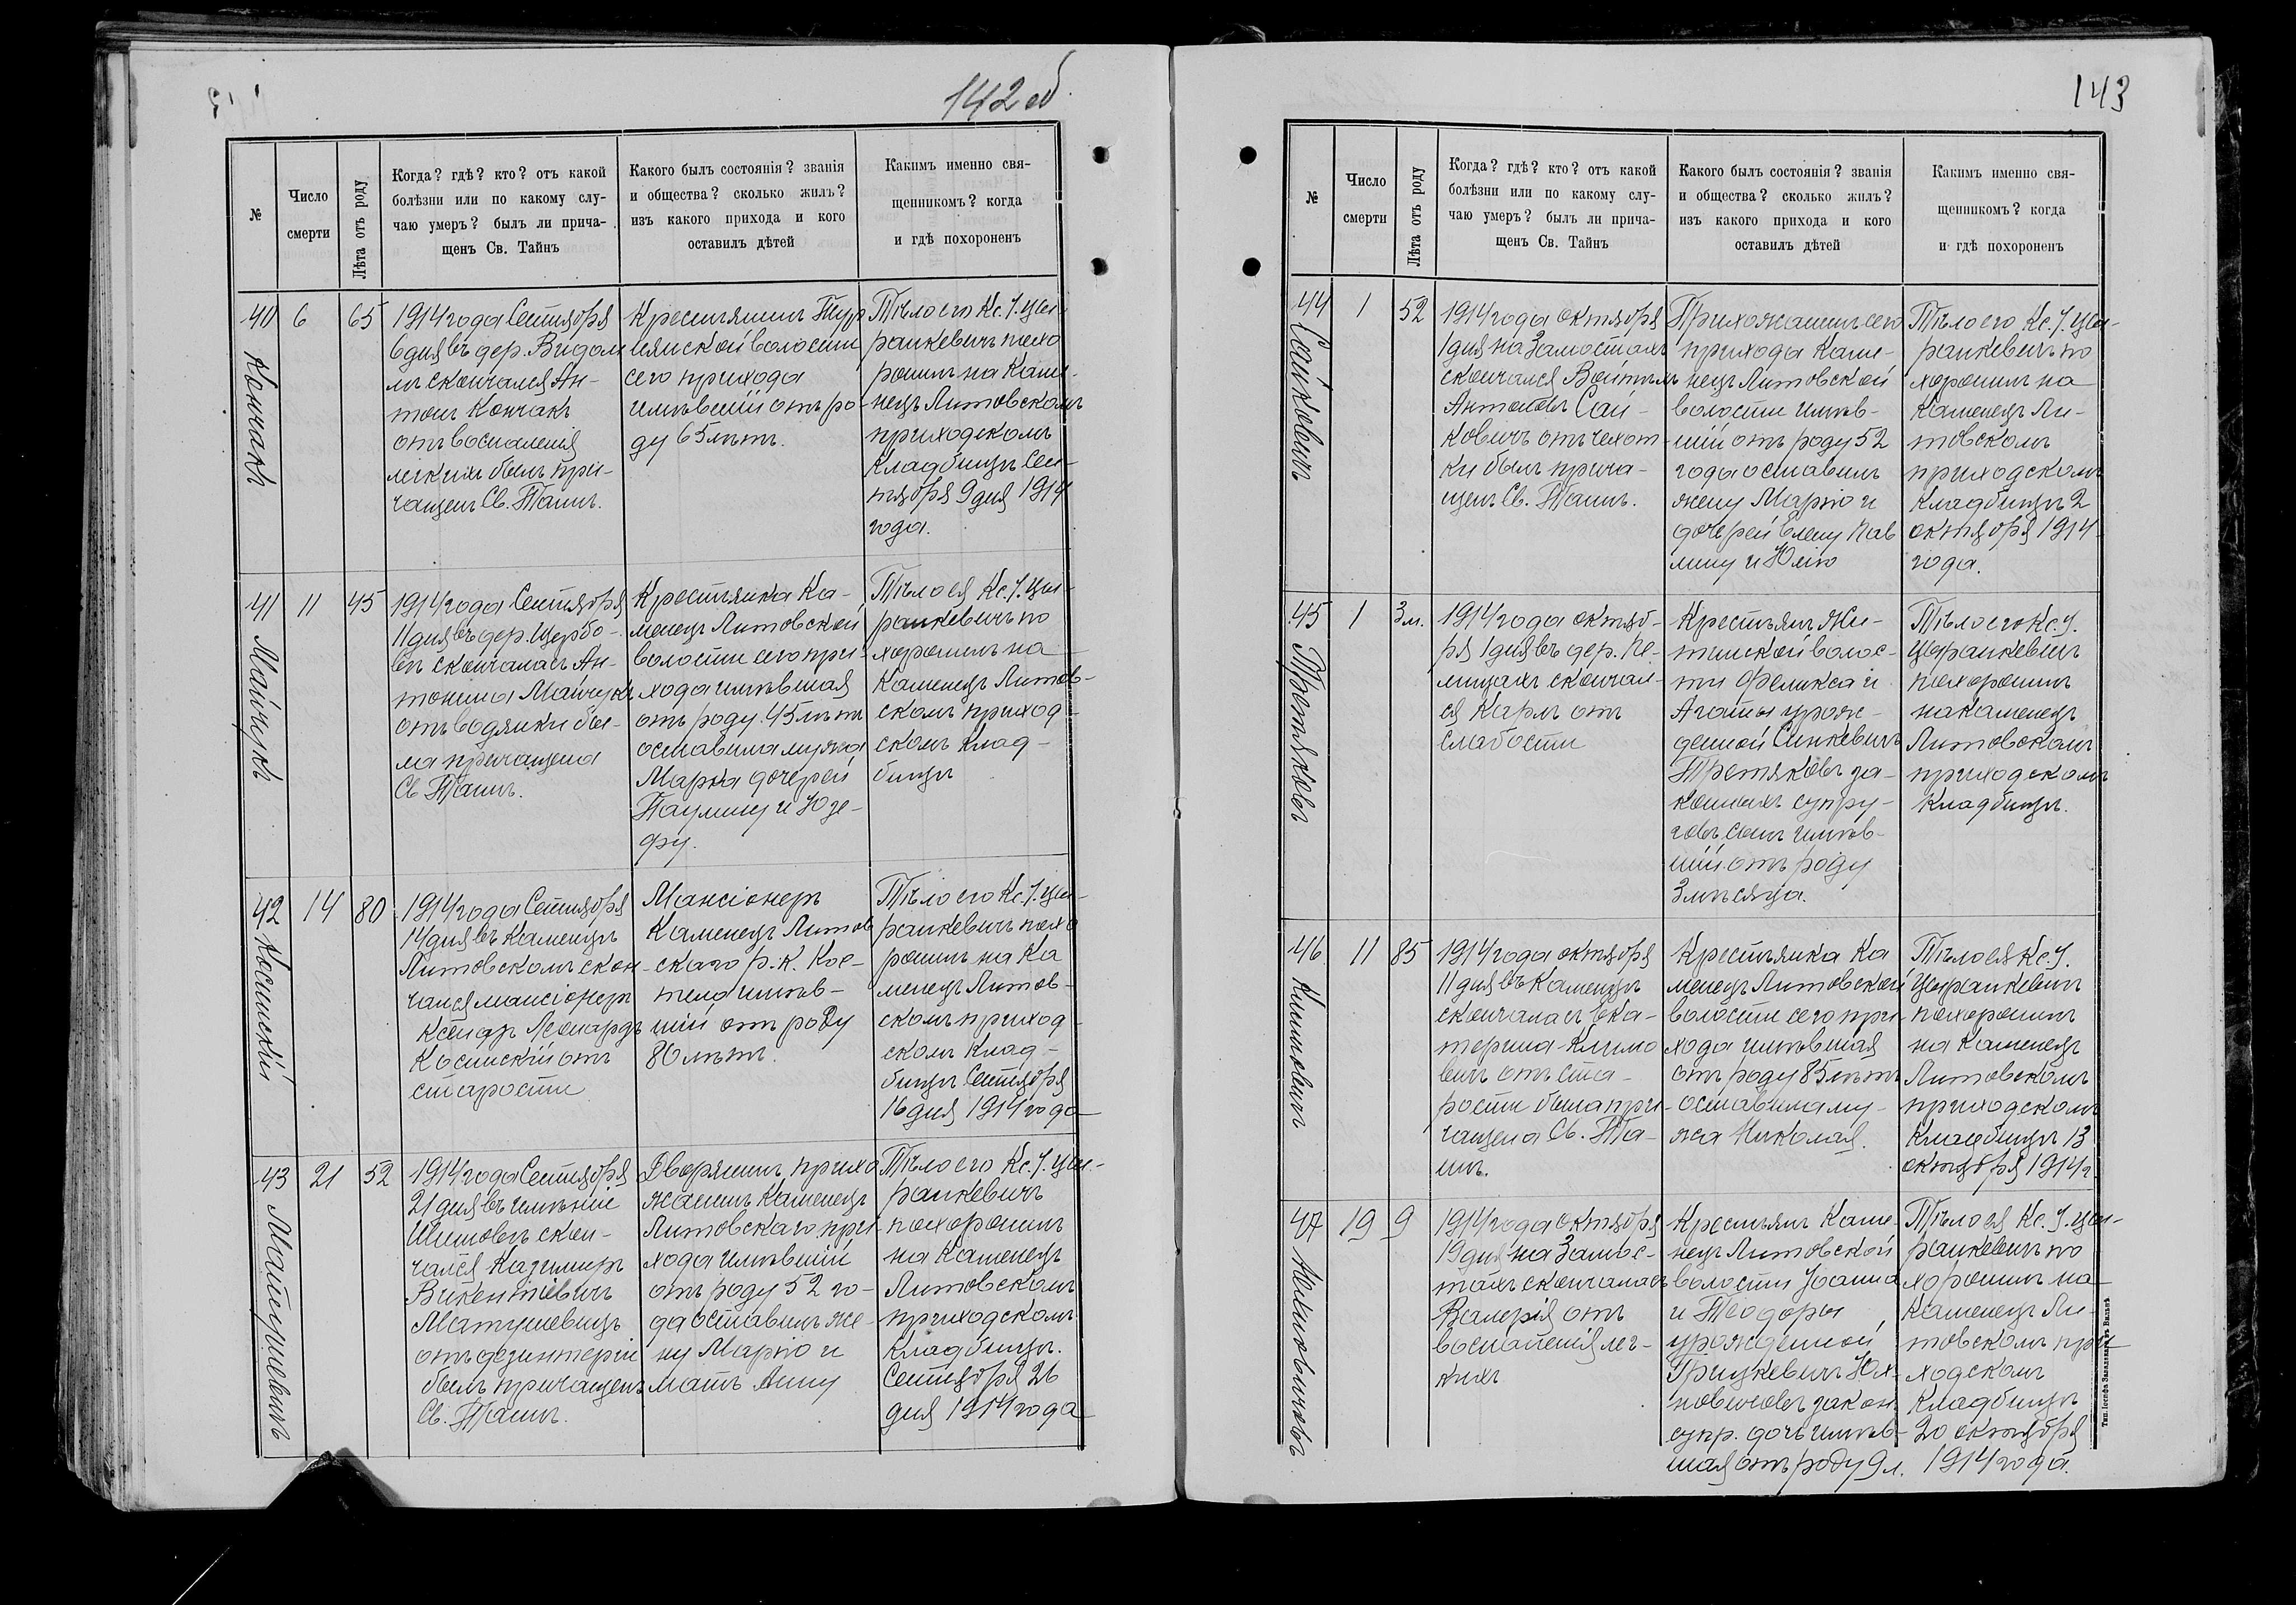 142 об
№
Число
смерти
Лѣта отъ роду
Когда? гдѣ? кто? отъ какой
болѣзни или по какому слу-
чаю умеръ? былъ ли прича-
щенъ Св. Тайнъ
Какого былъ состоянія? званія
и общества? сколько жилъ?
изъ какого прихода и кого
оставилъ дѣтей
Какимъ именно свя-
щенникомъ? когда
и гдѣ похороненъ
40
Кончакъ
6
65
1914 года Сентября
6 дня въ дер. Видом
лѣ скончался Ан-
тон Кончакъ
отъ воспаленія
легкихъ былъ при-
чащенъ Св. Таинъ.
Крестьянинъ
волости
сего прихода
имѣвшій отъ ро-
ду 65 лѣтъ.
Тѣло его Кс. І. Цы-
ранкевичъ похо
ронилъ на Каме-
нецъ Литовскомъ
приходскомъ
кладбищѣ Сен-
тября 9 дня 1914
года.
41
Майчукъ
11
45
1914 года Сентября
11 дня въ дер. Щербо-
вѣ скончалась Ан-
тонина Майчукъ
отъ водянки бы-
ла причащена
Св. Таинъ.
Крестьянка Ка-
менецъ Литовской
волости сего при-
хода имѣвшая
отъ роду 45 лѣтъ
оставила мужа
Марка дочерей
Паулину и Юзе-
фу.
Тѣло ея Кс. І. Цы-
ранкевичъ по
хоронилъ на
Каменецъ Литов-
скомъ приход-
скомъ клад-
бищѣ
42
Косинскій
14
80
1914 года Сентября
14 дня въ Каменцѣ
Литовскомъ скон-
чался мансіонеръ
Ксендзъ Леонардъ
Косинскій отъ
старости
Мансіонеръ
Каменецъ Литов
скаго р.-к. Кос-
тела имѣв-
шій отъ роду
80 лѣтъ.
Тѣло его Кс. І. Цы-
ранкевичъ похо
ронилъ на Ка
менецъ Литов-
скомъ приход-
скомъ клад-
бищѣ Сентября
16 дня 1914 года
43
Матушевичъ
21
52
1914 года Сентября
21 дня въ имѣніи
скон-
чался Казимиръ
Викентіевичъ
Матушевичъ
отъ дезинтеріи
былъ причащенъ
Св. Таинъ.
Дворянинъ, прихо
жанинъ Каменецъ
Литовскаго при-
хода имѣвшій
отъ роду 52 го-
да оставилъ же-
ну Марію и
мать Анну
Тѣло его Кс. І. Цы-
ранкевичъ
похоронилъ
на Каменецъ
Литовскомъ
приходскомъ
кладбищѣ.
Сентября 26
дня 1914 года
143
№
Число
смерти
Лѣта отъ роду
Когда? гдѣ? кто? отъ какой
болѣзни или по какому слу-
чаю умеръ? былъ ли прича-
щенъ Св. Тайнъ
Какого былъ состоянія? званія
и общества? сколько жилъ?
изъ какого прихода и кого
оставилъ дѣтей
Какимъ именно свя-
щенникомъ? когда
и гдѣ похороненъ
44
Сайковичъ
1
52
1914 года октября
1 дня на Замостахъ
скончался
Антоновъ Сай-
ковичъ отъ чахот-
ки былъ прича-
щенъ Св. Таинъ.
Прихожанинъ сего
прихода Каме-
нецъ Литовской
волости имѣв-
шій отъ роду 52
года оставилъ
жену Марію и
дочерей Елену Пав
лину и Юлію
Тѣло его Кс. І. Цы-
ранкевичъ по
хоронилъ на
Каменецъ Ли-
товскомъ
приходскомъ
кладбищѣ 2
октября 1914
года.
45
Третяковъ
1
3 м.
1914 года октяб-
ря 1 дня въ дер. Пе-
лищахъ скончал-
ся Карлъ отъ
слабости
Крестьянъ Жи-
тинской волос-
ти Феликса и
Агаты урож-
денной Синкевичъ
Третяковъ за-
конныхъ супру-
говъ, сынъ имѣв-
шій отъ роду
3 мѣсяца.
Тѣло его Кс. І.
Цыранкевичъ
похоронилъ
на Каменецъ
Литовскомъ
приходскомъ
кладбищѣ.
46
Климовичъ
11
85
1914 года октября
11 дня въ Каменцѣ
скончалась Ека-
терина Климо
вичъ отъ ста-
рости была при-
чащена Св. Та-
инъ.
Крестьянка Ка
менецъ Литовской
волости сего при-
хода имѣвшая
отъ роду 85 лѣтъ
оставила му-
жа Николая.
Тѣло ея Кс. І.
Цыранкевичъ
похоронилъ
на Каменецъ
Литовскомъ
приходскомъ
кладбищѣ 13
октября 1914 г.
47
19
9
1914 года октября
19 дня на Замос-
тахъ скончалась
Валерія отъ
воспаленія лег-
кихъ
Крестьянъ Каме-
нецъ Литовской
волости Іоанна
и Теодоры
урожденной
Грицкевичъ Юх-
новичовъ закон.
супр. дочь имѣв-
шая отъ роду 9 л.
Тѣло ея Кс. І. Цы-
ранкевичъ по
хоронилъ на
Каменецъ Ли-
товскомъ при-
ходскомъ
кладбищѣ
20 октября
1914 года.